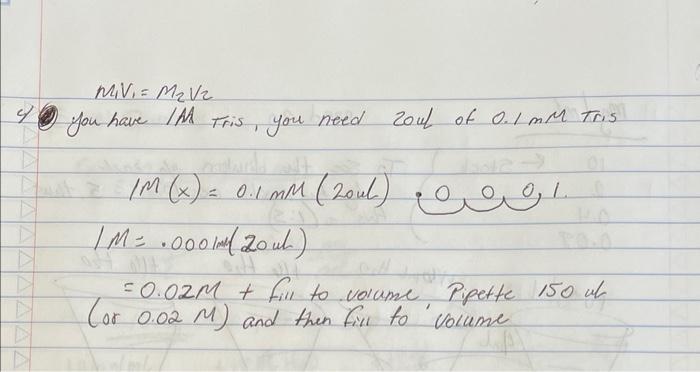 M1V1 = M2V2
4) you have 1M Tris, you need 20ul of 0.1 mM Tris
1M (x) = 0.1 mM (20ul) .0001.
1M = .0001 (20ul)
= 0.02M + fill to volume, Pipette 150 ul
(or 0.02 M) and then fill to volume